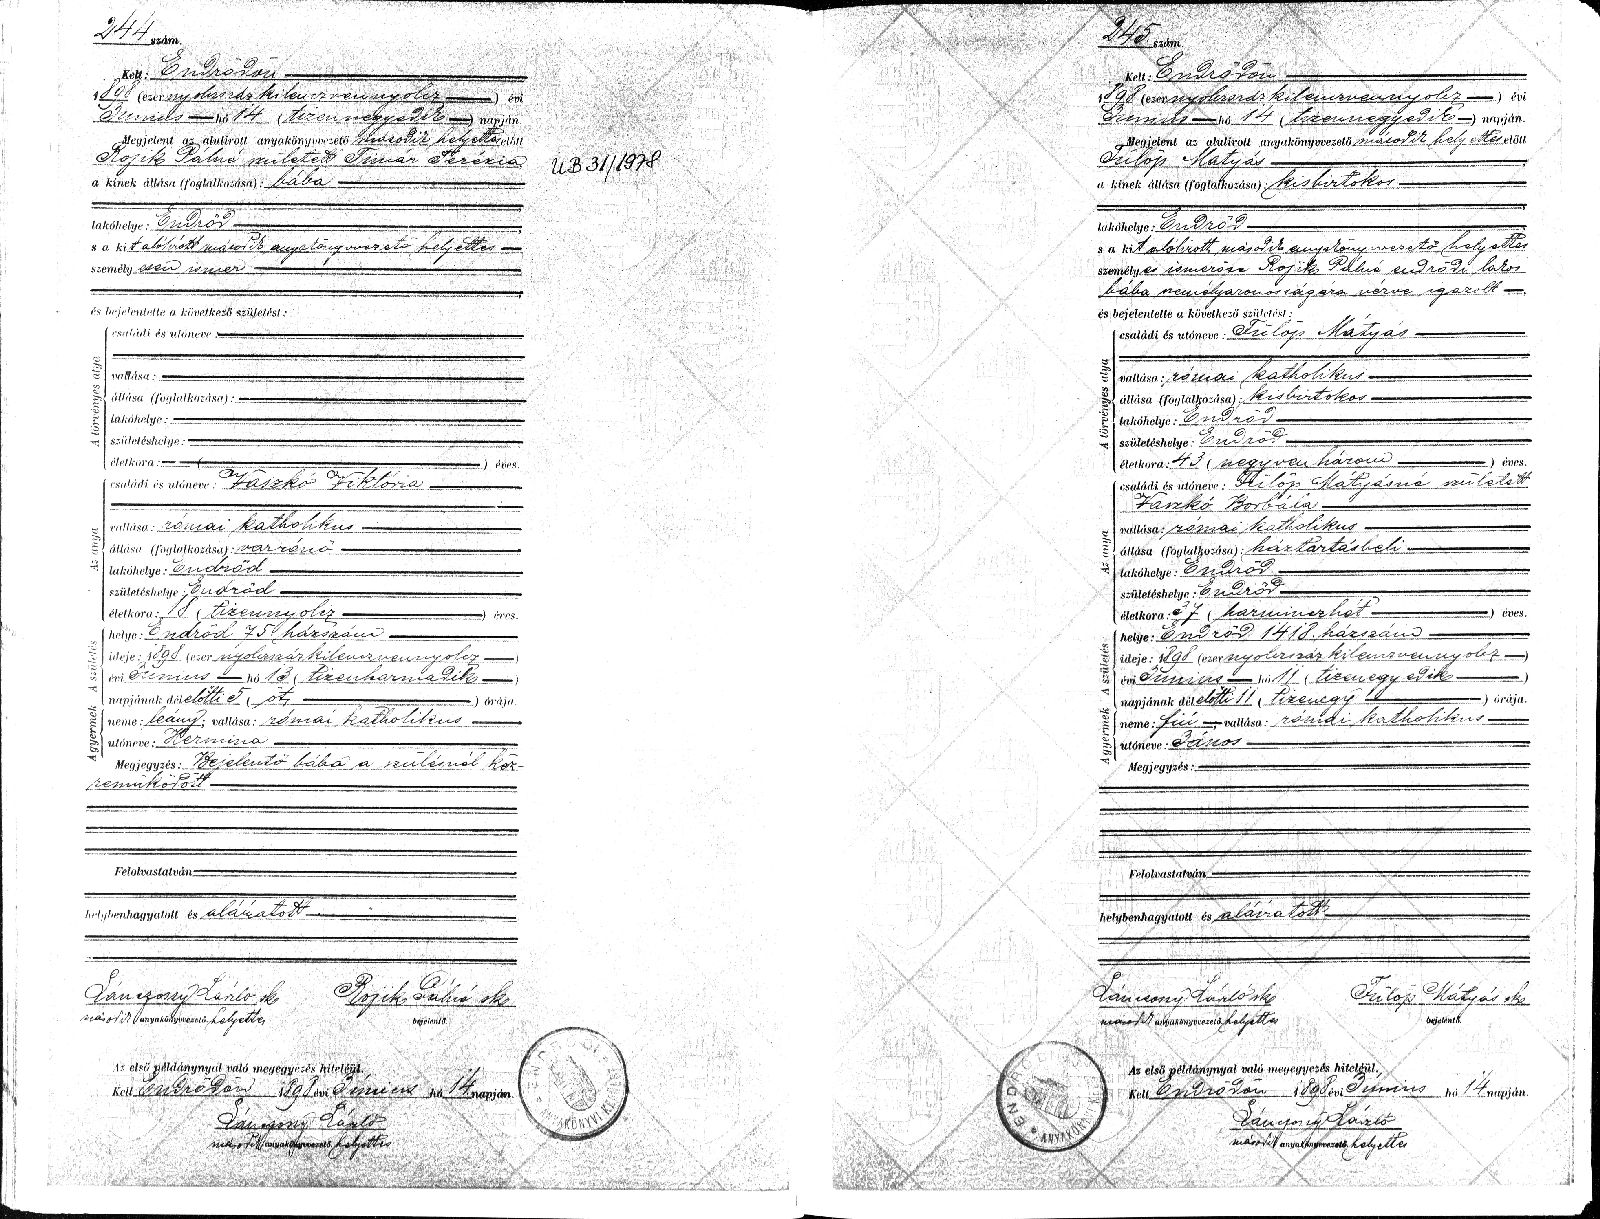 244 szám.
Kelt: Endrődön
1898 (ezernyolczszázkilenczvennyolcz) évi
Június hó 14 (tizennegyedik) napján.
Megjelent az alulirott anyakönyvvezető második helyettes előtt
Rojik Pálné született Timár Terézia
a kinek állása (foglalkozása): bába
lakóhelye: Endrőd
s a kit alulirott második anyakönyvvezető helyettes
személyesen ismer
és bejelentette a következő születést:
A törvényes atya
családi és utóneve:
vallása:
állása (foglalkozása):
lakóhelye:
születéshelye:
életkora: ( ) éves.
Az anya
családi és utóneve: Vaszkó Viktória
vallása: római katholikus
állása (foglalkozása): varrónő
lakóhelye: Endrőd
születéshelye: Endrőd
életkora: 18 (tizennyolcz) éves.
A születés
helye: Endrőd 75 házszám
ideje: 1898 (ezer nyolczszázkilenczvennyolcz)
évi Június hó 13 (tizenharmadik)
napjának délelőtti 5 (öt) órája.
A gyermek
neme: leány; vallása: római katholikus
utóneve: Hermina
Megjegyzés: Bejelentő bába a szülésnél köz-
remüködött
Felolvastatván
helybenhagyatott és aláiratott
Lánczony László sk
Rojik Pálné sk
második anyakönyvvezető helyettes
bejelentő.
Az első példánynyal való megegyezés hiteléül.
Kelt Endrődön 1898 évi Június hó 14 napján.
Lánczony László
második anyakönyvvezető helyettes
UB 31/1978
245 szám
Kelt: Endrődön
1898 (ezernyolczszázkilenczvennyolcz) évi
Június hó 14 (tizennegyedik) napján.
Megjelent az alulirott anyakönyvvezető második helyettes előtt
Fülöp Mátyás
a kinek állása (foglalkozása): kisbirtokos
lakóhelye: Endrőd
s a kit alulirott második anyakönyvvezető helyettes
személyes ismerőse Rojik Pálné endrődi lakos
bába személyazonosságára nézve igazolt
és bejelentette a következő születést:
A törvényes atya
családi és utóneve: Fülöp Mátyás
vallása: római katholikus
állása (foglalkozása): kisbirtokos
lakóhelye: Endrőd
születéshelye: Endrőd
életkora: 43 (negyvenhárom) éves.
Az anya
családi és utóneve: Fülöp Mátyásné született
Vaszkó Borbála
vallása: római katholikus
állása (foglalkozása): háztartásbeli
lakóhelye: Endrőd
születéshelye: Endrőd
életkora: 37 (harminczhét) éves.
A születés
helye: Endrőd 1418 házszám
ideje: 1898 (ezer nyolczszázkilenczvennyolcz)
évi Június hó 11 (tizenegyedik)
napjának délelőtti 11 (tizenegy) órája.
A gyermek
neme: fiú vallása: római katholikus
utóneve: János
Megjegyzés:
Felolvastatván
helybenhagyatott és aláiratott
Lánczony László sk
Fülöp Mátyás sk
második anyakönyvvezető helyettes
bejelentő.
Az első példánynyal való megegyezés hiteléül.
Kelt Endrődön 1898 évi Június hó 14 napján.
Lánczony László
második anyakönyvvezető helyettes